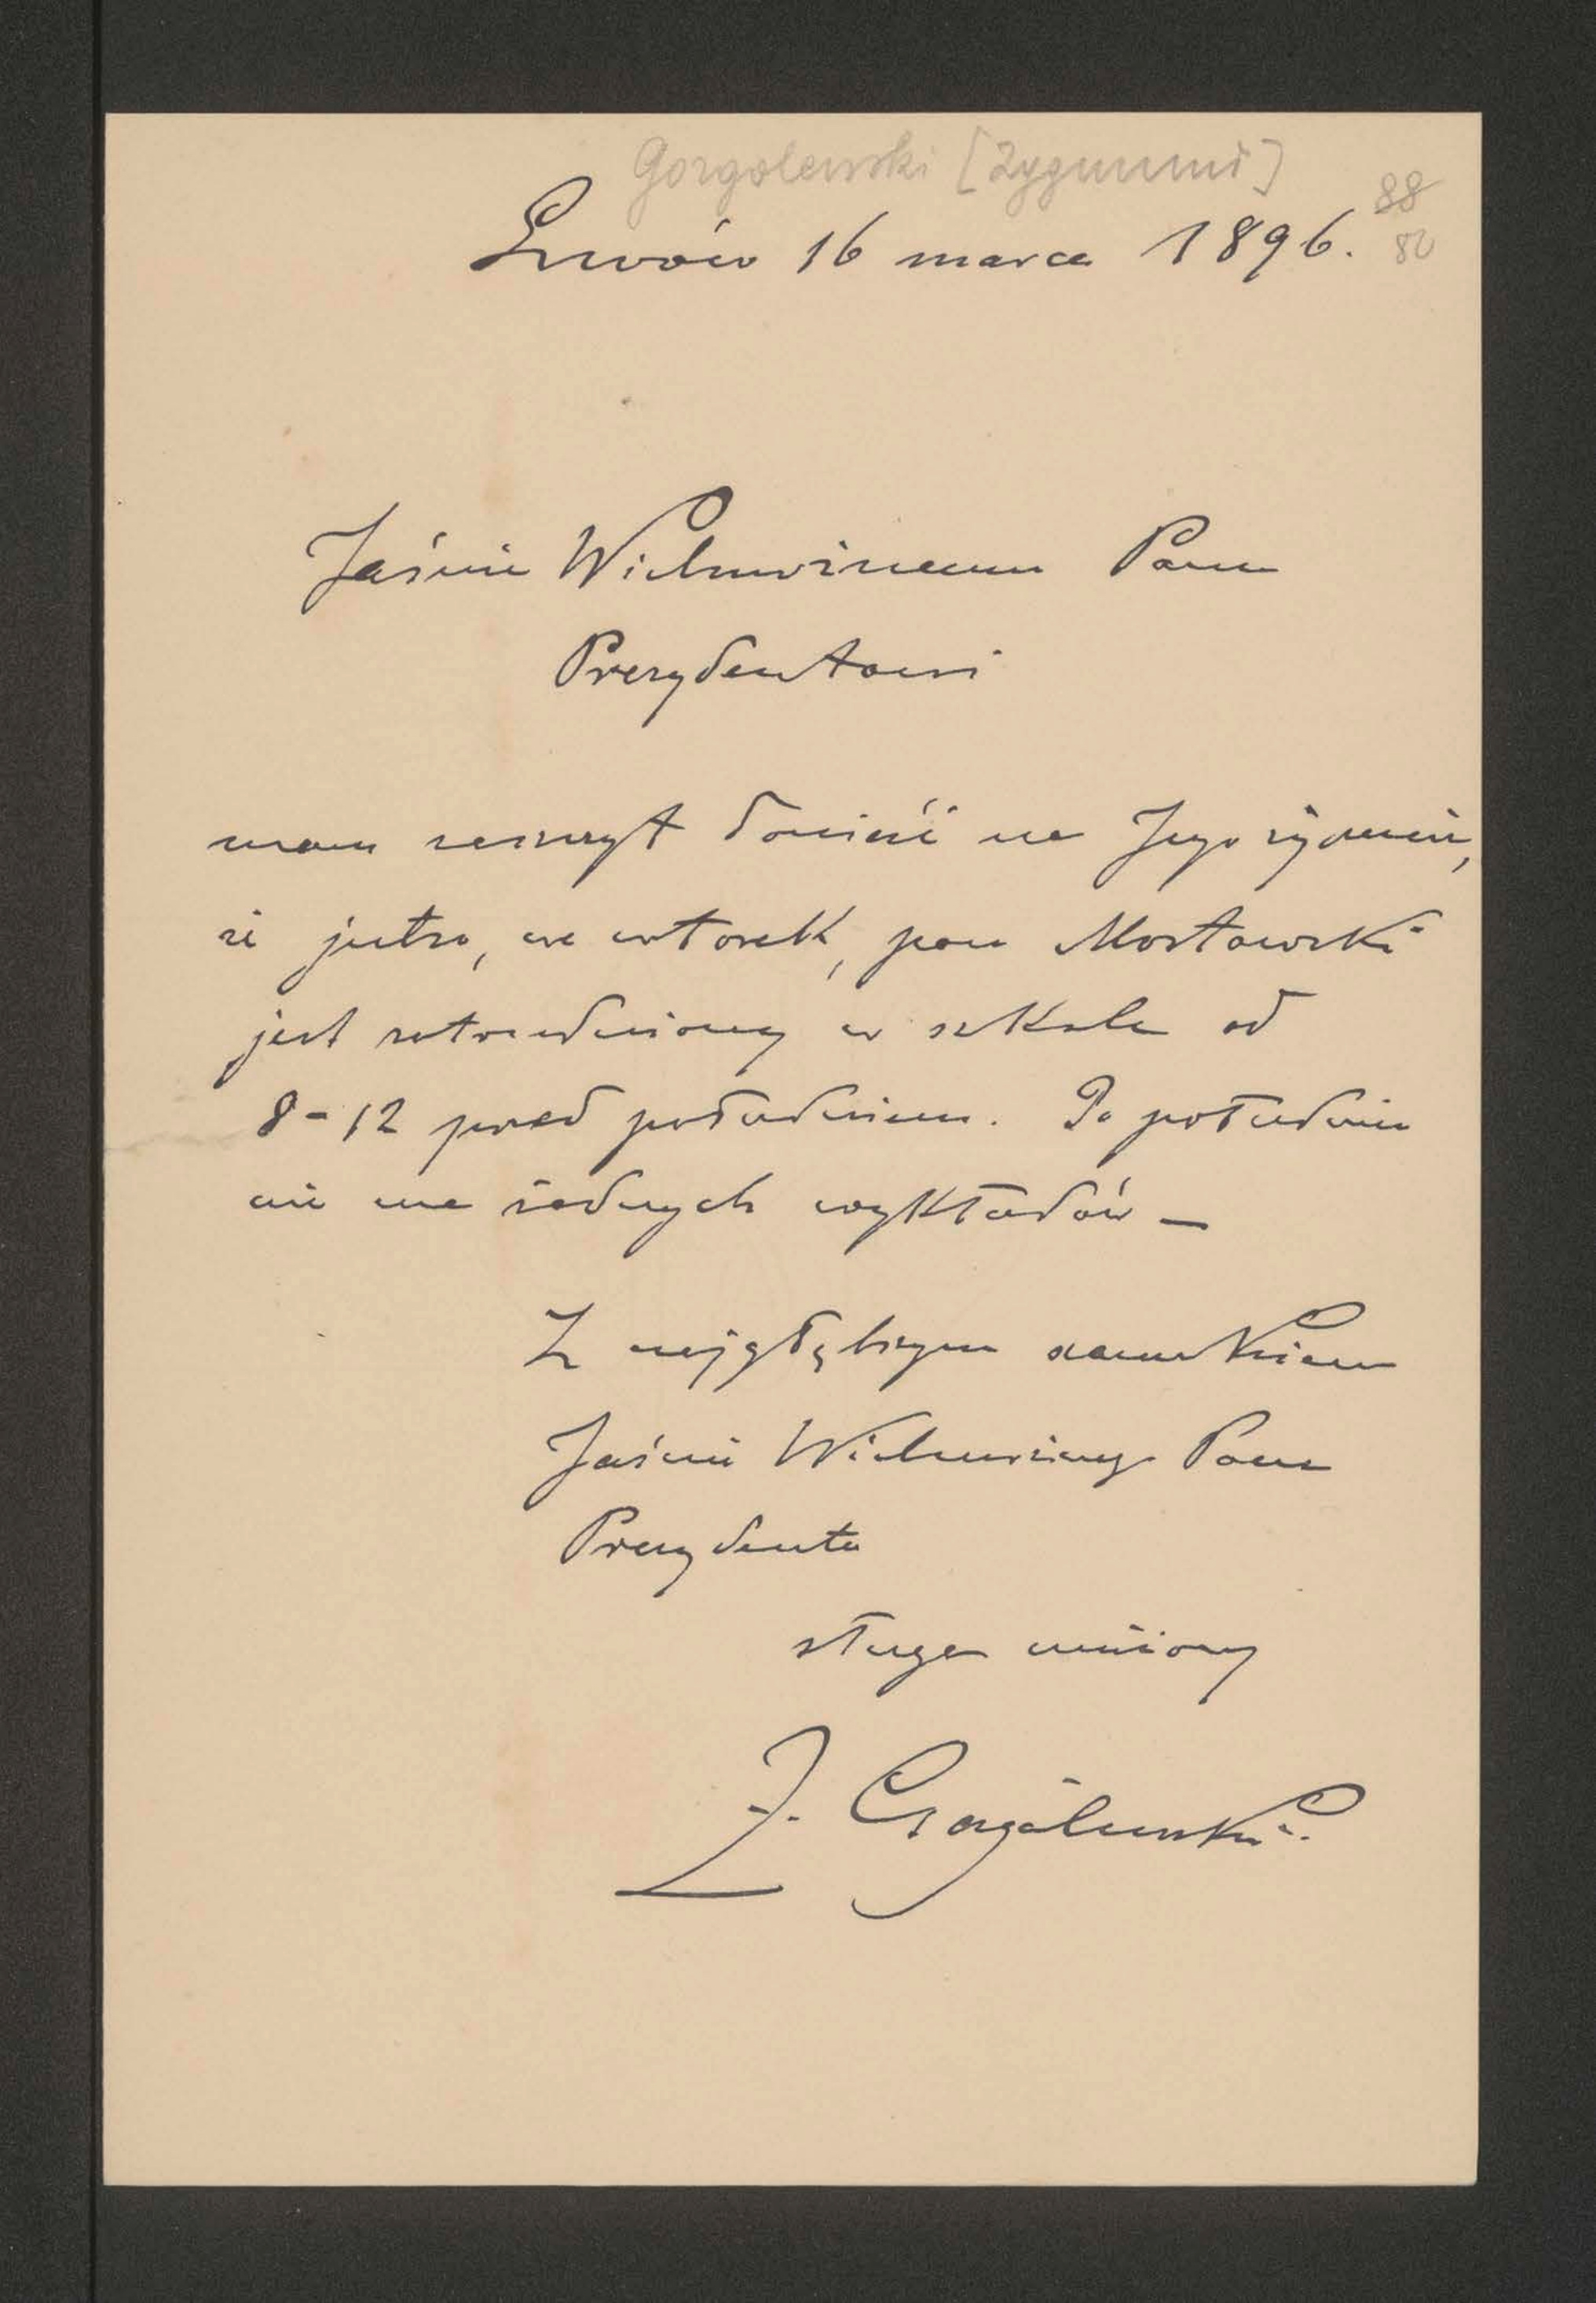 Gorgolewski [Zygmunt]
88
80
Lwów 16 marca 1896.
Jaśnie Wielmożnemu Panu
Prezydentowi
mam zaszczyt donieść na Jego żądanie,
że jutro, we wtorek, pan Mostowski
jest zatrudniony w szkole od
8-12 przed południem. Po południu
nie ma żadnych wykładów –
Z najgłębszym szacunkiem
Jaśnie Wielmożnego Pana
Prezydenta
sługa uniżony
Z. Gorgolewski.